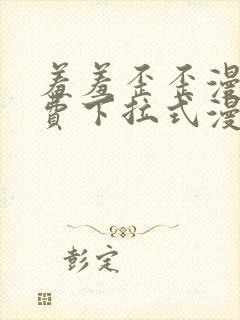 羞羞歪歪漫
費下拉式漫
彭定